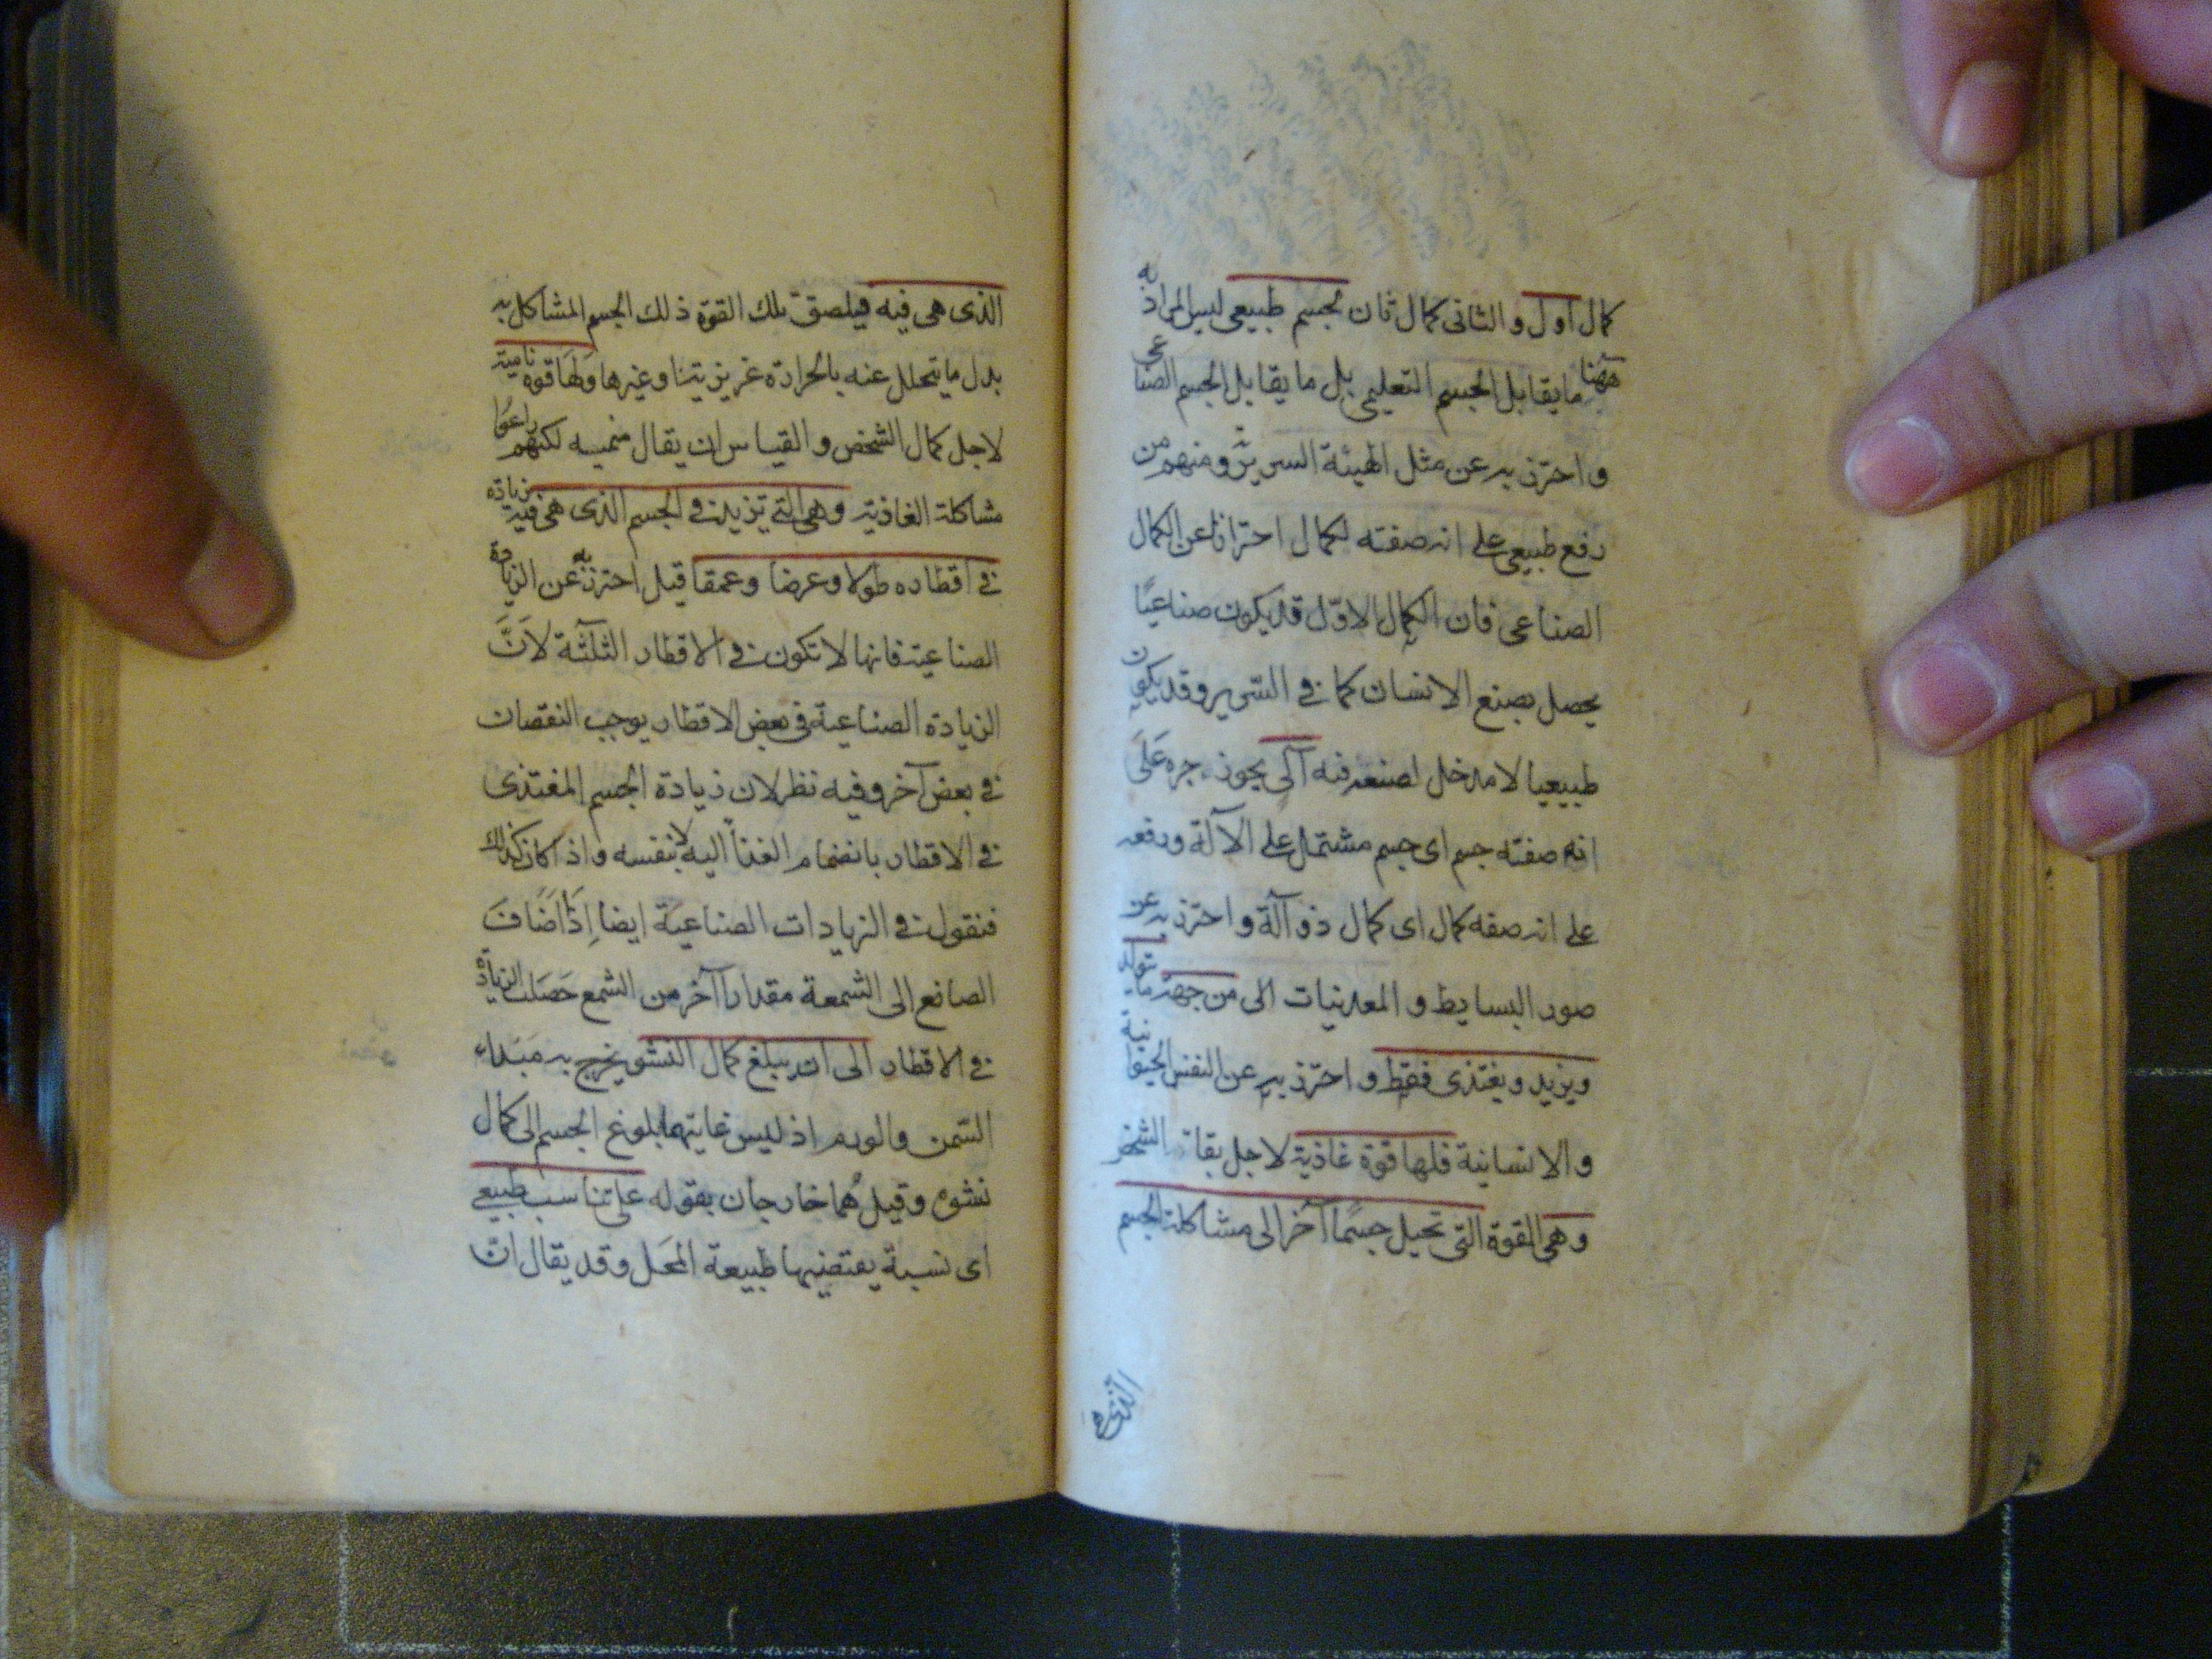 كمال اول و الثانى كمال ثان لجسم طبيعى ليس المراد به
ههنا ما يقابل الجسم التعليمى بل ما يقابل الجسم الصناعى
و احترز به عن مثل الهيئة السريرية و منهم من
رفع طبيعى على انه صفته لكمال احترازا عن الكمال
الصناعى فان الكمال الاوّل قد يكون صناعيًا
يحصل بصنع الانسان كما فى السرير و قد يكون
طبيعيا لا مدخل لصنعه فيه آلى يجوز جره عَلَى
انه صفته جسم اى جسم مشتمل على الآلة ورفعه
على انه صفه كمال اى كمال ذو آلة و احترز به عن
صور البسايط و المعدنيات الى من جهة ما يتولد
ويزيد ويغتذى فقط و احترز به عن النفس الحيوانية
و الانسانية فلها قوة غاذية لاجل بقاء الشخص
و هى القوة التى تحيل جسمًا آخر الى مشاكلة الجسم
الذى
الذى هى فيه فيلصق تلك القوة ذلك الجسم المشاكل به
بدل ما يتحلل عنه بالحرارة غريزيتنا و غيرها وَلَهَا قوة نامية
لاجل كمال الشخص و القياس ان يقال منميه لكنهم راعوا
مشاكلة الغاذية وهى التى تزيد فى الجسم الذى هى فيه زيادة
فى اقطاره طولا و عرضا و عمقا قيل احترز به عن الزيادة
الصناعية فانها لا تكون فى الاقطار الثلثة لاَنَّ
الزيادة الصناعية فى بعض الاقطار يوجب النقصان
فى بعض آخر و فيه نظر لان زيادة الجسم المغتذى
فى الاقطار بانضمام الغذاء اليه لا بنفسه و اذا كان كذلك
فنقول فى الزيادات الصناعية ايضا اِذَا اَضَافَ
الصانع الى الشمعة مقدارا آخر من الشمع حَصَلت الزيادة
فى الاقطار الى ان يبلغ كمال النشو يخرج به مَبْداء
السّمن و الورم اذ ليس غايتهما بلوغ الجسم الى كمال
نشوه و قيل هُما خارجان بقوله على تناسب طبيعى
اى نسبة يقتضيها طبيعة المحَل و قد يقال ان